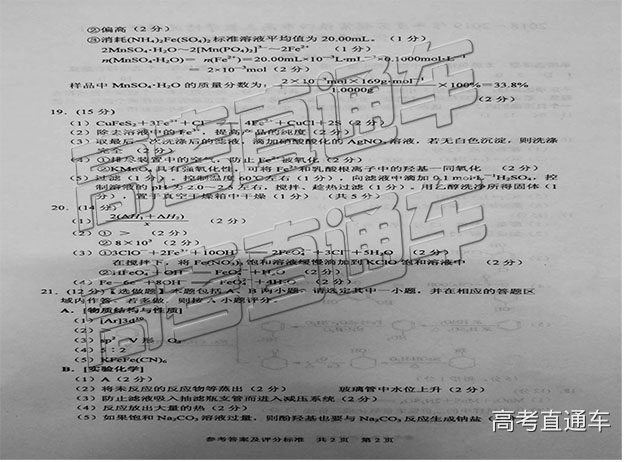 ②偏高（2分）
③消耗(NH₄)₂Fe(SO₄)₂标准溶液平均值为20.00mL。（1分）
2MnSO₄·H₂O～2[Mn(PO₄)₂]³⁻～2Fe²⁺ （1分）
n(MnSO₄·H₂O)= n(Fe²⁺)=20.00mL×10⁻³L·mL⁻¹×0.1000mol·L⁻¹
= 2×10⁻³mol（2分）
样品中MnSO₄·H₂O的质量分数为：2×10⁻³mol×169g·mol⁻¹/1.0000g×100%=33.8%
（2分）
19.（15分）
（1）CuFeS₂+3Fe³⁺+Cl⁻ 4Fe²⁺+CuCl+2S（2分）
（2）除去溶液中的Fe³⁺，提高产品的纯度（2分）
（3）取最后一次洗涤后的滤液，滴加硝酸酸化的AgNO₃溶液，若无白色沉淀，则洗涤
完全（2分）
（4）①排尽装置中的空气，防止Fe²⁺被氧化（2分）
②KMnO₄具有强氧化性，可将Fe²⁺和乳酸根离子中的羟基一同氧化（2分）
（5）过滤（1分），控制温度 0℃左右（1分），向滤液中滴加0.1mol·L⁻¹H₂SO₄，控
制溶液的pH为2.0～2.5左右，搅拌、趁热过滤（1分）。用乙醇洗净所得固体（1
分），置于真空干燥箱中干燥（1分）（共5分）
20.（14分）
（1）2(ΔH₁+ΔH₂)/x （2分）
（2）①>（2分）
②8×10³（2分）
（3）①3ClO⁻+2Fe³⁺+10OH⁻ 2FeO₄²⁻+3Cl⁻+5H₂O（2分）
在搅拌下，将Fe(NO₃)₃饱和溶液缓慢滴加到KClO饱和溶液中（2分）
②4HFeO₄ OH FeO₄²⁻+H₂O（2分）
（4）Fe-6e⁻+8OH⁻ FeO₄²⁻+4H₂O（2分）
21.（12分）【选做题】本题包括A、B两小题，请选定其中一小题，并在相应的答题区
域内作答。若多做，则按A小题评分。
A.［物质结构与性质］
（1）[Ar]3d¹⁰
（2）
（3）sp³ V形 O₃
（4）5∶2
（5）KFeFe(CN)₆
B.［实验化学］
（1）A（2分）
（2）将未反应的反应物等蒸出（2分） 玻璃管中水位上升（2分）
（3）防止滤液吸入抽滤瓶支管而进入减压系统（2分）
（4）反应放出大量的热（2分）
（5）如果饱和Na₂CO₃溶液过量，则酚羟基也要与Na₂CO₃反应生成钠盐（2分）
参考答案及评分标准 共2页 第2页
高考直通车
高考直通车
高考直通车